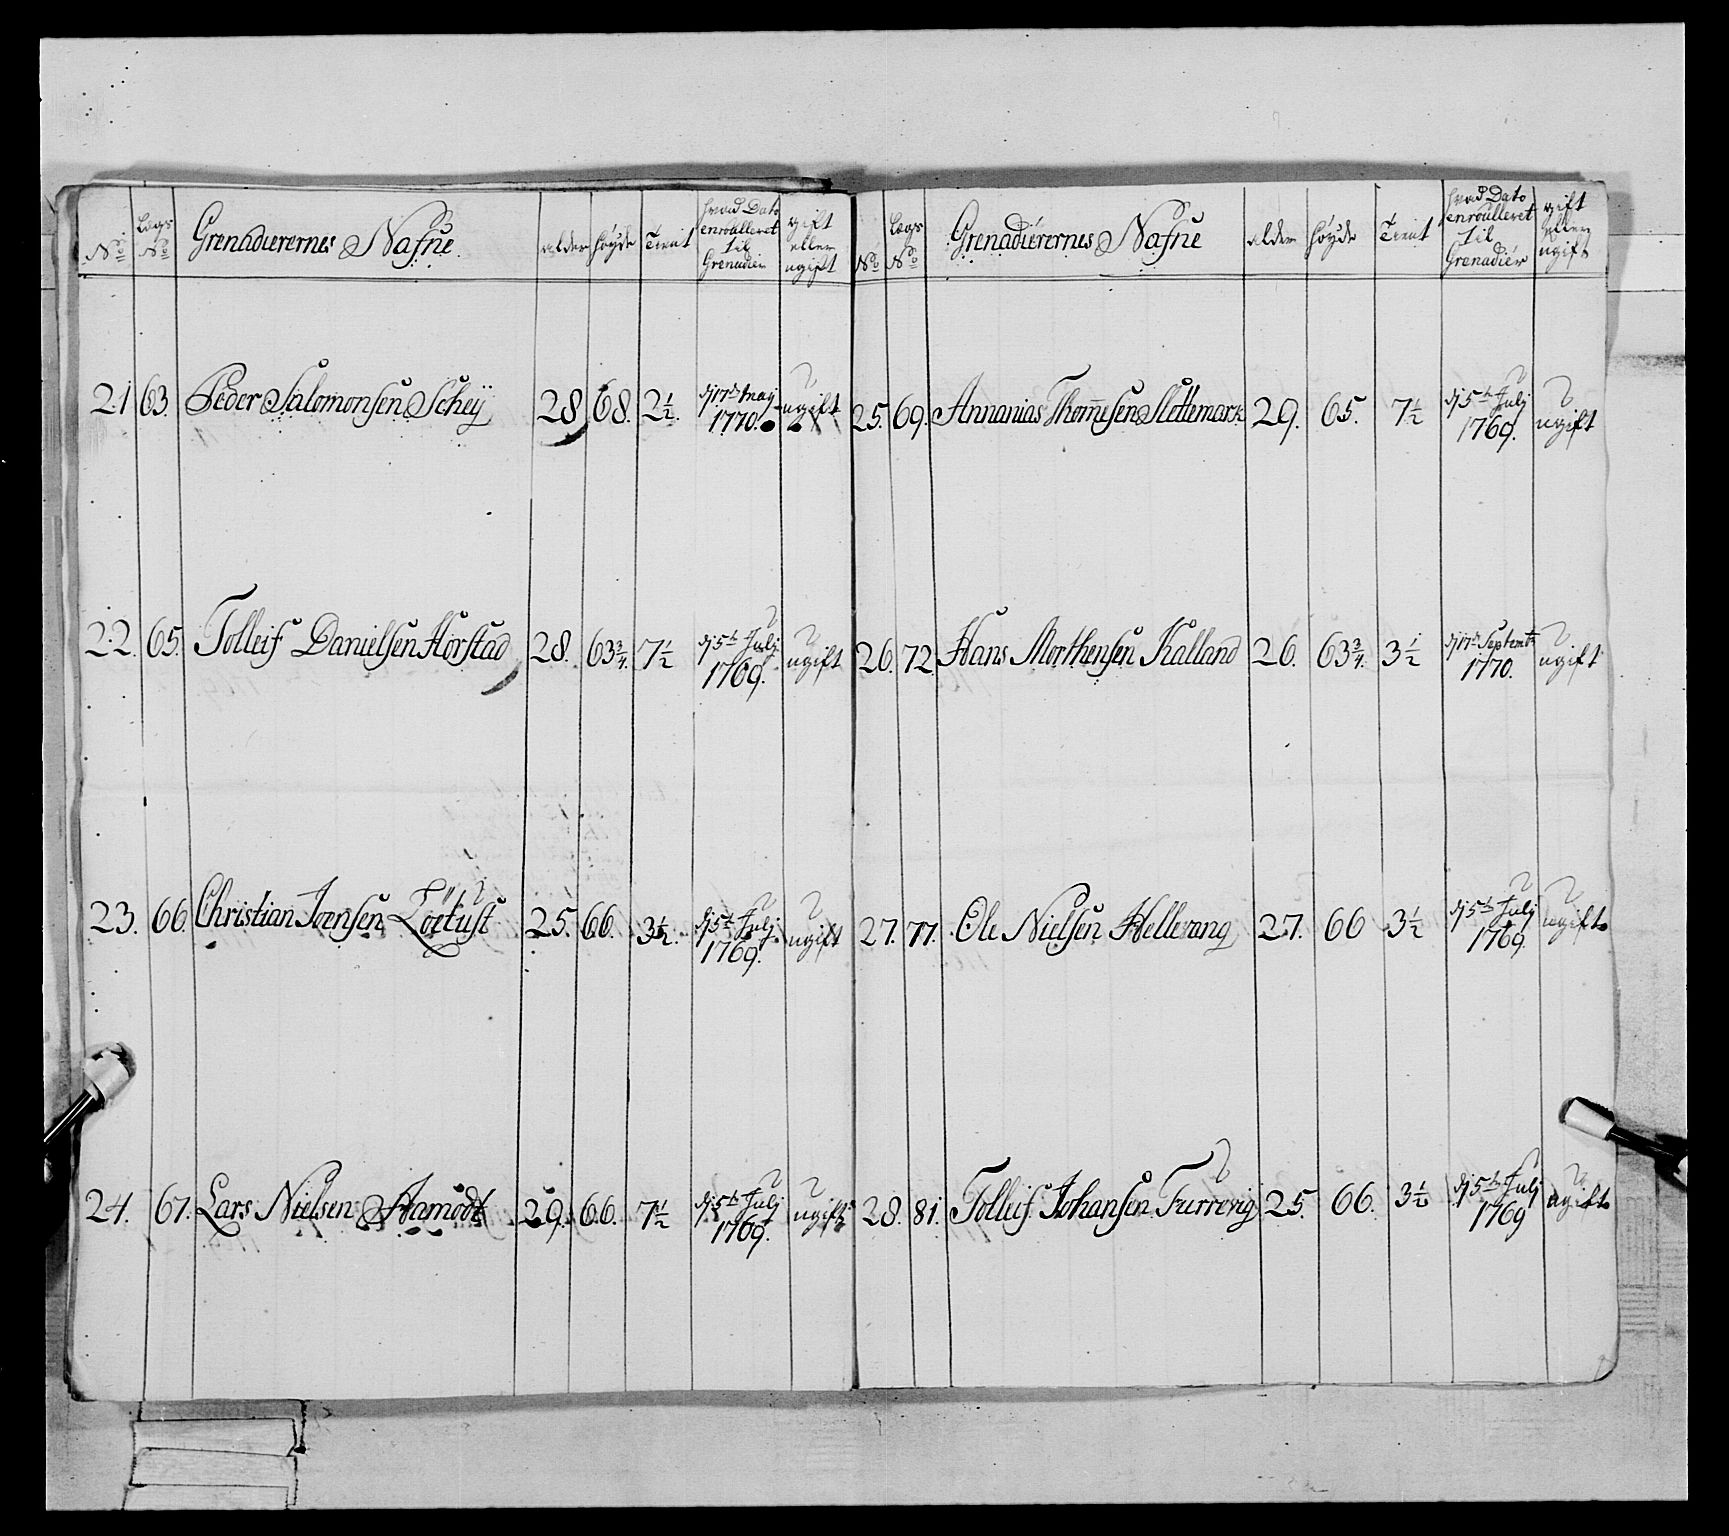 No Lægs No Grenadierernes Nafne alder høyde Tient hvad Dato enroulleret til Grenadier gift eller ugift
21 63. Peder Salomonsen Scheÿ 28 68. 2½ dj 17de maÿ 1770. ugift
22. 65. Tolleif Danielsen Hørstad 28. 63¾. 7½ dj 5te Julj 1769. ugift
23. 66. Christian Joensen 25. 66. 3½. dj 5te Julj 1769. ugift
24. 67. Lars Nielsen Aamodt 29. 66. 7½ dj 5te Julj 1769. ugift
No Lægs No Grenadierernes Nafne alder høyde Tient hvad Dato enroulleret til Grenadier gift eller ugift
25. 69. Annanias Thom̄esen Slettemark 29. 65. 7½ dj 5te Julj 1769. ugift
26. 72 Hans Morthensen Kalland 26. 63¾. 3½ dj 17de Septembr 1770. ugift
27. 77. Ole Nielsen Hellevang 27. 66 3½ dj 5te Julj 1769. ugift
28. 81. Tolleif Johansen Furrevig 25. 66. 3½ dj 5te Julj 1769 ugift